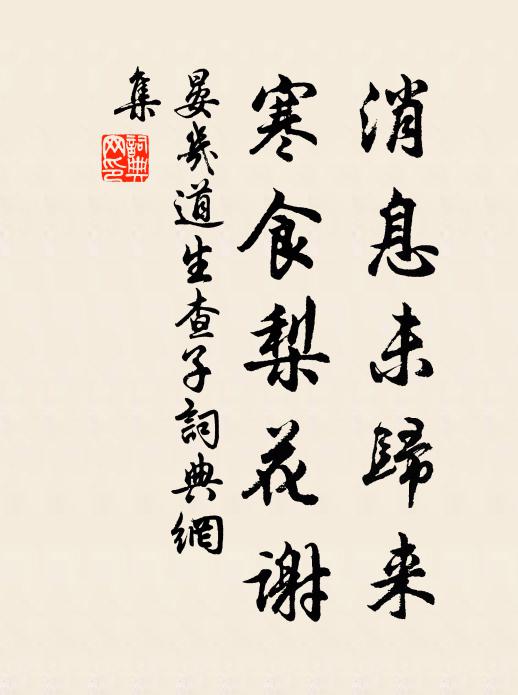 消息未歸来
寒食梨花谢
晏幾道生查子詞典網
集
詞典
网印